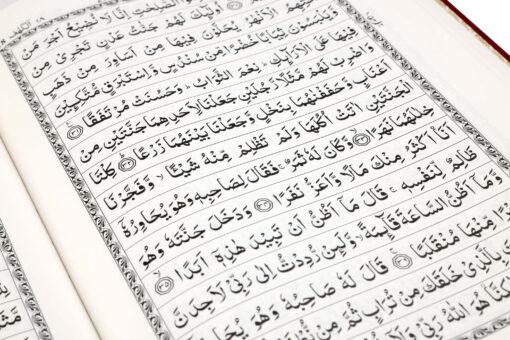 الصّٰلِحٰتِ اِنَّا لَا نُضِيْعُ اَجْرَ مَنْ
اُولٰٓئِكَ لَهُمْ جَنّٰتُ عَدْنٍ تَجْرِيْ مِنْ
تَحْتِهِمُ الْاَنْهٰرُ يُحَلَّوْنَ فِيْهَا مِنْ اَسَاوِرَ مِنْ ذَهَبٍ
وَّيَلْبَسُوْنَ ثِيَابًا خُضْرًا مِّنْ سُنْدُسٍ وَّاِسْتَبْرَقٍ مُّتَّكِـِٕيْنَ
فِيْهَا عَلَى الْاَرَآئِكِ ؕ نِعْمَ الثَّوَابُ ؕ وَحَسُنَتْ مُرْتَفَقًا ﴿۳۱﴾
وَاضْرِبْ لَهُمْ مَّثَلًا رَّجُلَيْنِ جَعَلْنَا لِاَحَدِهِمَا جَنَّتَيْنِ مِنْ
اَعْنَابٍ وَّحَفَفْنٰهُمَا بِنَخْلٍ وَّجَعَلْنَا بَيْنَهُمَا زَرْعًا ﴿۳۲﴾ كِلْتَا
الْجَنَّتَيْنِ اٰتَتْ اُكُلَهَا وَلَمْ تَظْلِمْ مِّنْهُ شَيْـًٔا ۙ وَّفَجَّرْنَا
خِلٰلَهُمَا نَهَرًا ﴿۳۳﴾ وَّكَانَ لَهٗ ثَمَرٌ ۚ فَقَالَ لِصَاحِبِهٖ وَهُوَ يُحَاوِرُهٗٓ
اَنَا اَكْثَرُ مِنْكَ مَالًا وَّاَعَزُّ نَفَرًا ﴿۳۴﴾ وَدَخَلَ جَنَّتَهٗ وَهُوَ
ظَالِمٌ لِّنَفْسِهٖ ۚ قَالَ مَآ اَظُنُّ اَنْ تَبِيْدَ هٰذِهٖٓ اَبَدًا ﴿۳۵﴾
وَّمَآ اَظُنُّ السَّاعَةَ قَآئِمَةً ۙ وَّلَئِنْ رُّدِدْتُّ اِلٰى رَبِّيْ لَاَجِدَنَّ
مِّنْهَا مُنْقَلَبًا ﴿۳۶﴾ قَالَ لَهٗ صَاحِبُهٗ وَهُوَ
بِالَّذِيْ خَلَقَكَ مِنْ تُرَابٍ ثُمَّ مِنْ
هُوَ اللّٰهُ رَبِّيْ وَلَآ